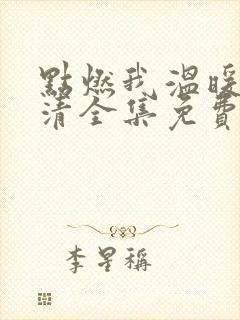 點燃我 溫暖
清全集免費
李星稱